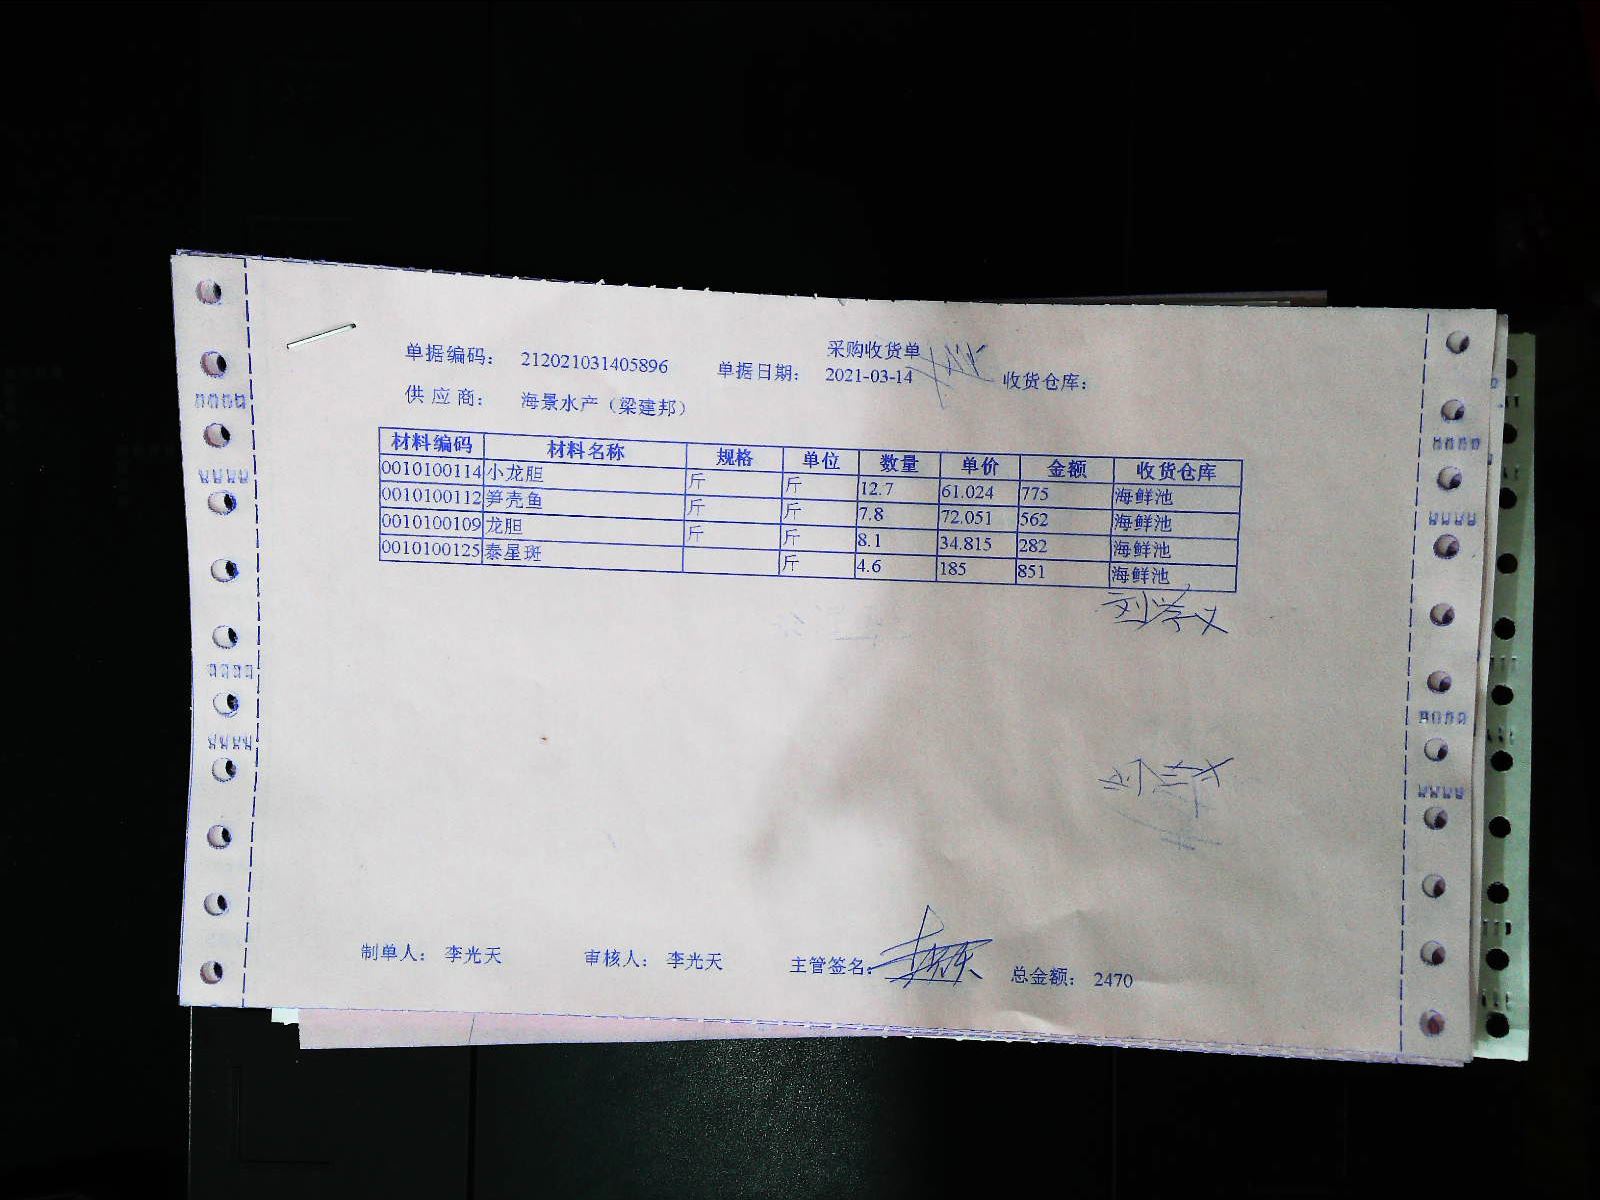 采购收货单
单据编码： 212021031405896 单据日期： 2021-03-14 收货仓库：
供应商： 海景水产（梁建邦）
材料编码 材料名称 规格 单位 数量 单价 金额 收货仓库
0010100114 小龙胆 斤 斤 12.7 61.024 775 海鲜池
0010100112 笋壳鱼 斤 斤 7.8 72.051 562 海鲜池
0010100109 龙胆 斤 斤 8.1 34.815 282 海鲜池
0010100125 泰星斑 斤 4.6 185 851 海鲜池
制单人： 李光天 审核人： 李光天 主管签名： 总金额： 2470